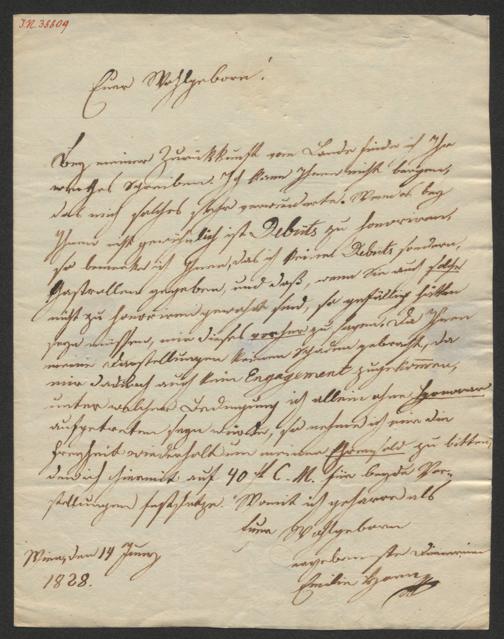 I.N. 38809
Euer Wohlgeborn!
Bey meiner Zurückkunft vom Lande finde ich Ihr
werthes Schreiben. Ich kann Ihnen nicht bergen,
das mich solches sehr verwunderte. Wenn es bey
Ihnen nicht gewöhnlich ist Debüts zu honoriren,
so bemerke ich Ihnen, das ich keine Debüts sondern,
Gastrollen gegeben, und daß, wenn Sie auch solche
nicht zu honoriren gewohnt sind, so gefälligst hätten
seyn müssen, mir dieses vorher zu sagen. Da Ihnen
meine Darstellungen keinen Schaden gebracht, da
mir dadurch auch kein Engagement zugekommen,
unter welcher Bedingung ich allein ohne Honorar
aufgetreten seyn würde, so nehme ich mir die
Freyheit wiederholt um meine Honorar zu bitten,
den ich hiermit auf 40 f C. M. für beyde Vor-
stellungen festsetze. Womit ich geharre als
Euer Wohlgeborn
ergebenste Dienerin
Wien, den 14 Juny
1828.
Emilie